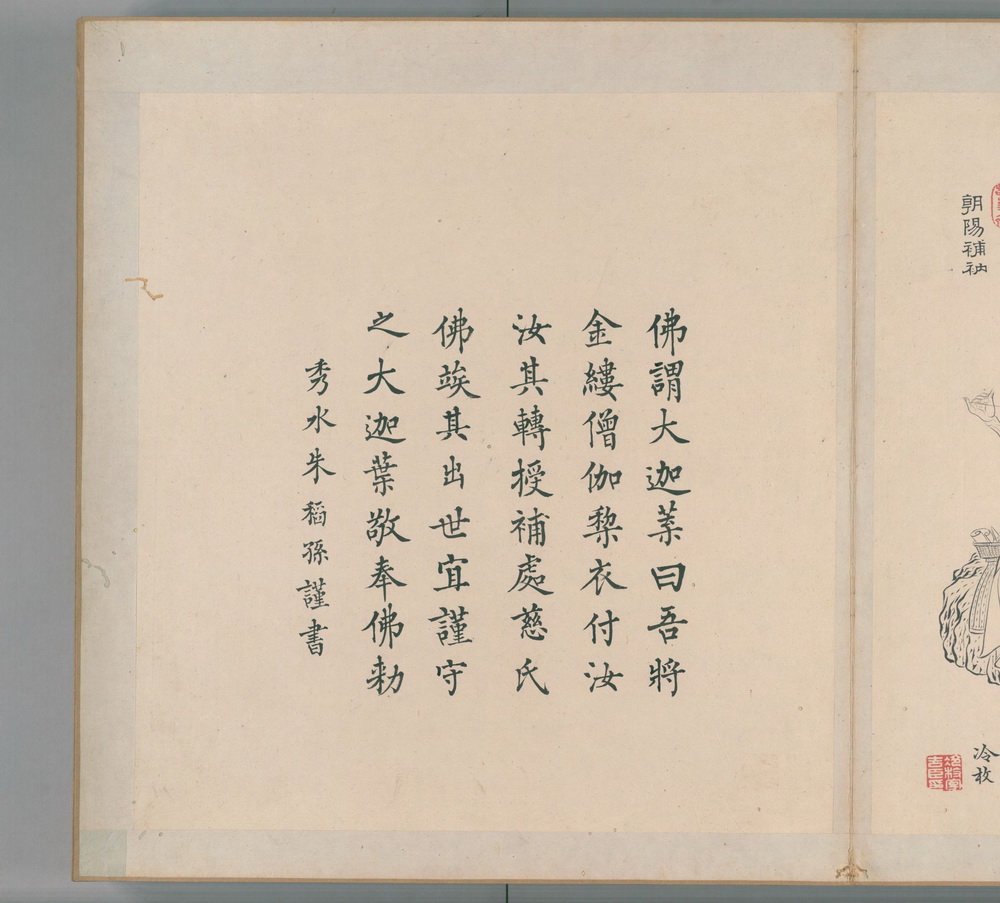 朝陽補衲
冷枚
佛謂大迦葉曰吾將
金縷僧伽棃衣付汝
汝其轉授補處慈氏
佛竢其出世宜謹守
之大迦葉敬奉佛勑
秀水朱稻孫謹書